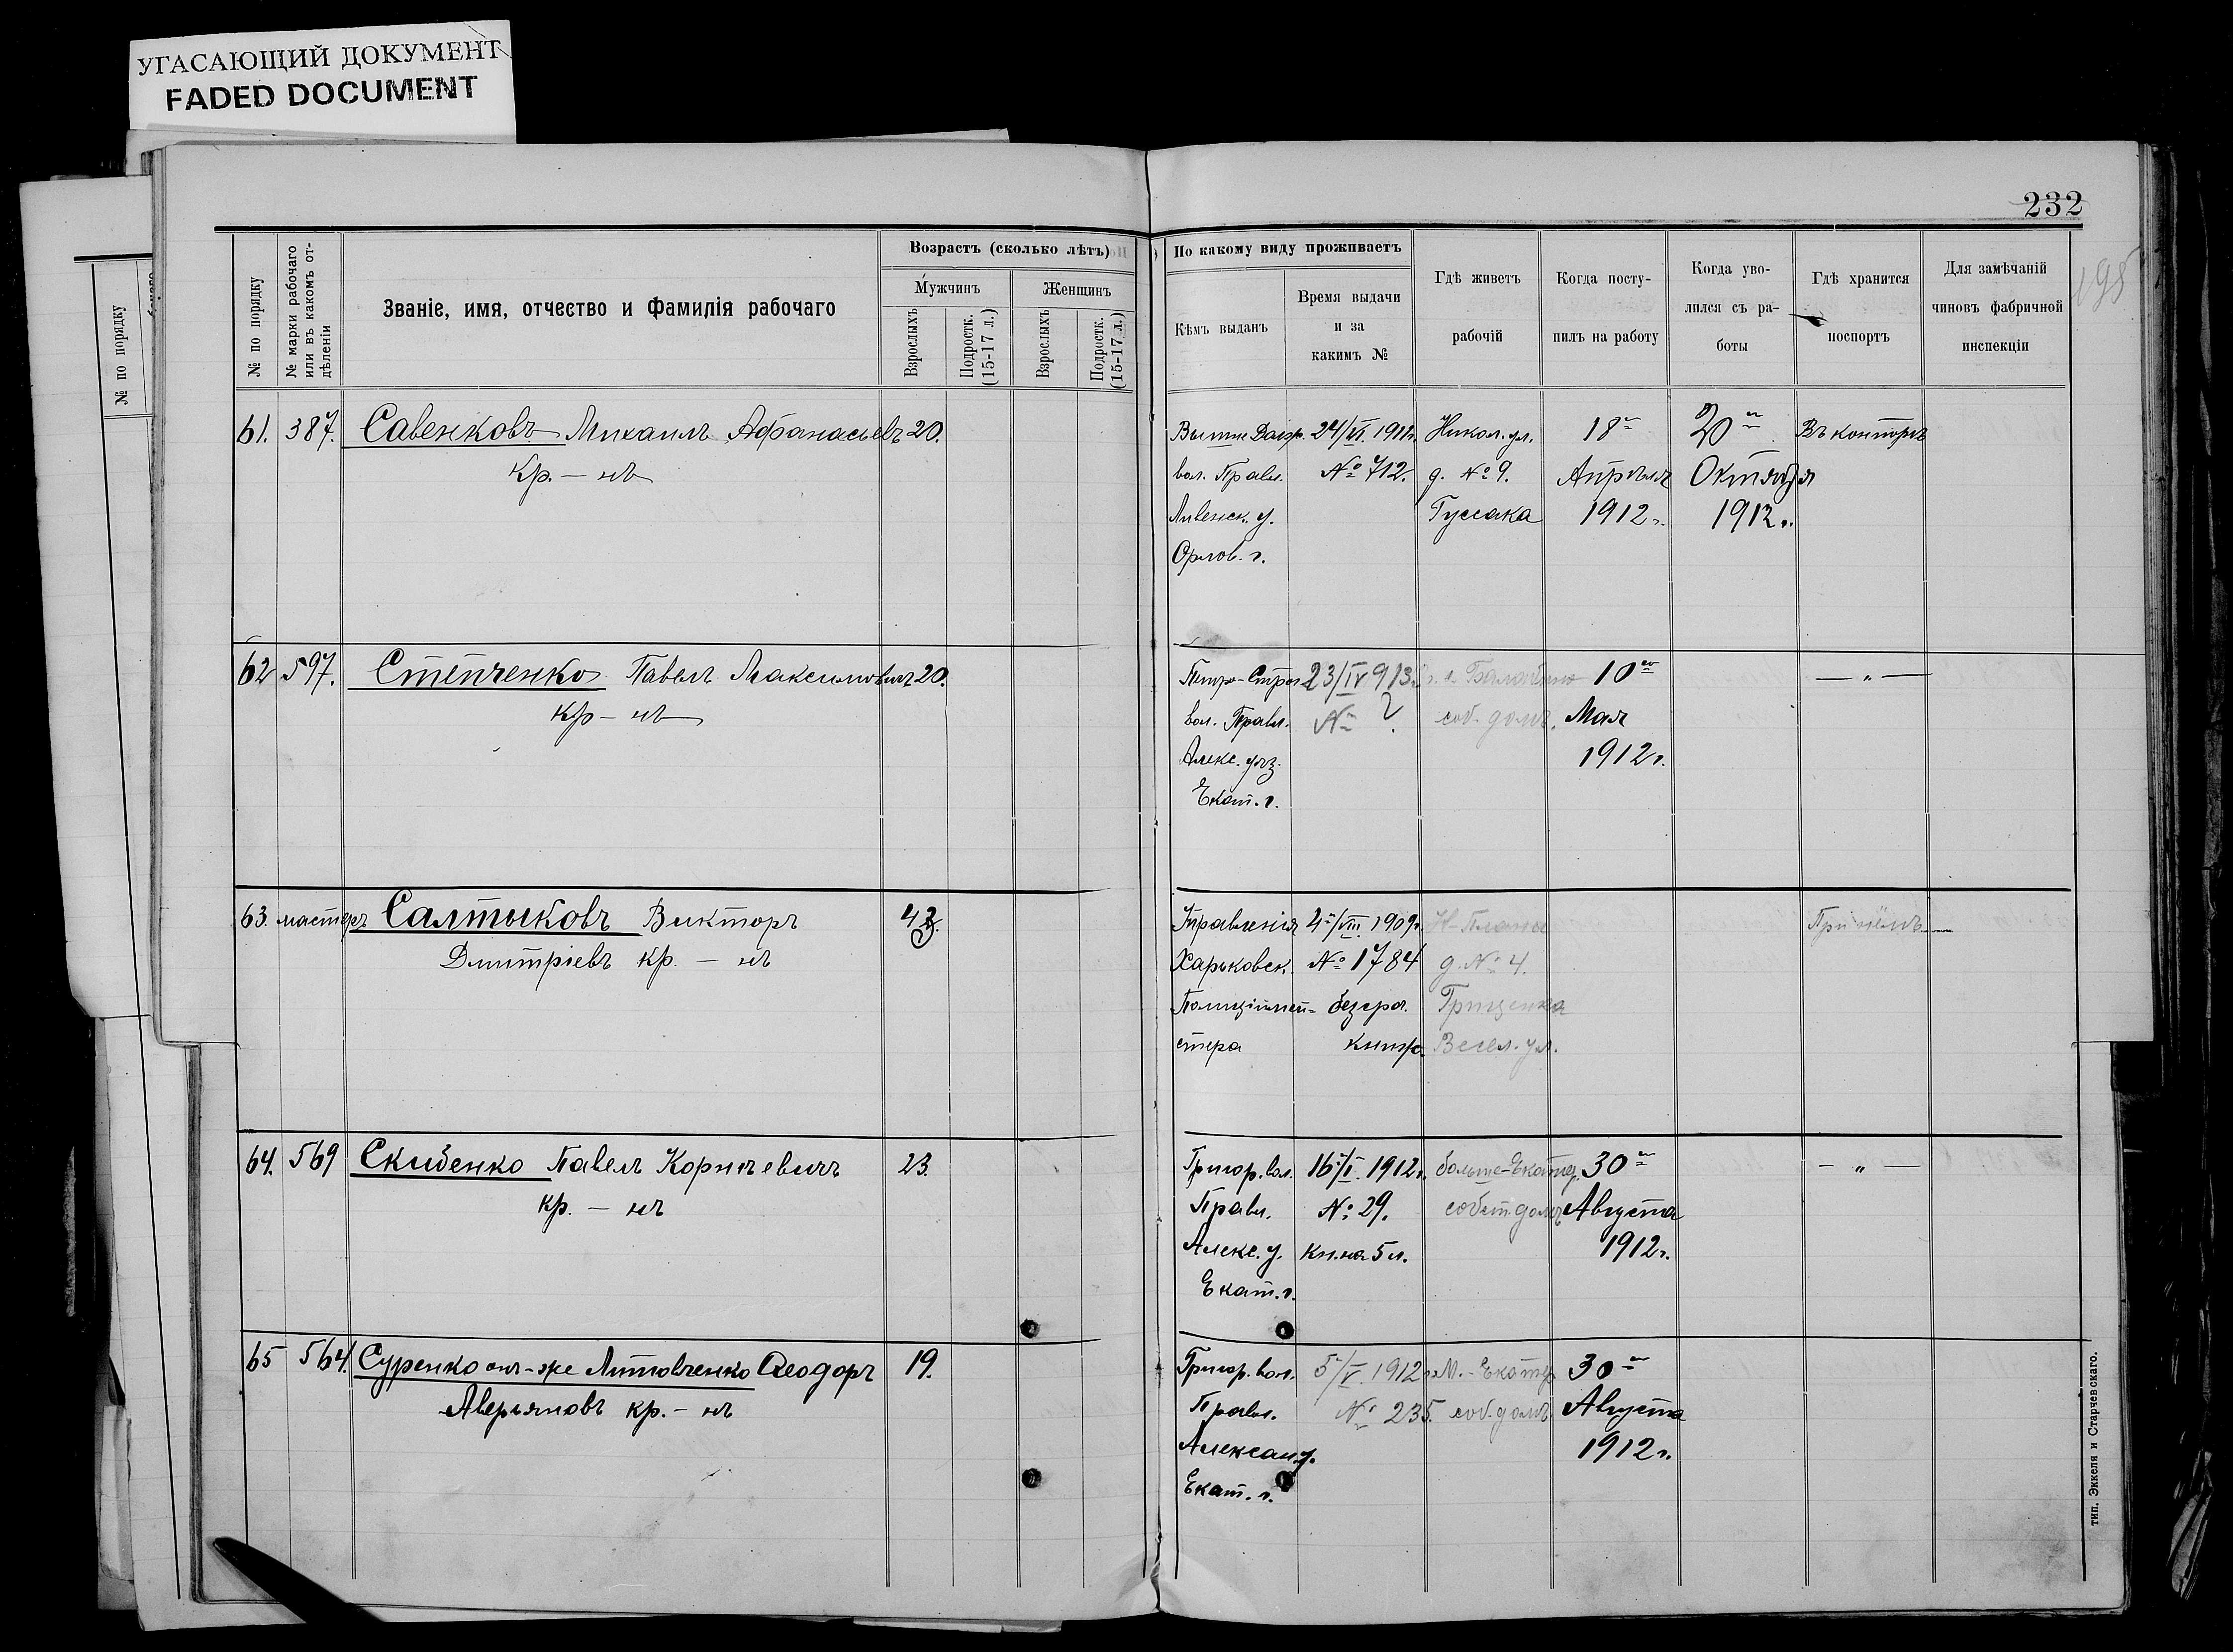 УГАСАЮЩИЙ ДОКУМЕНТ
FADED DOCUMENT
232
195
№ по порядку
№ по порядку
№ марки рабочаго или въ какомъ отдѣленіи
Званіе, имя, отчество и Фамилія рабочаго
Возрастъ (сколько лѣтъ)
Мужчинъ
Женщинъ
Взрослыхъ
Подростк. (15-17 л.)
Взрослыхъ
Подростк. (15-17 л.)
По какому виду проживаетъ
Кѣмъ выданъ
Время выдачи и за какимъ №
Гдѣ живетъ рабочій
Когда поступилъ на работу
Когда уволился съ работы
Гдѣ хранится паспортъ
Для замѣчаній чиновъ фабричной инспекціи
61. 387. Савенковъ Михаилъ Афанасьевъ 20.
кр. — нъ
24/VI. 1911г. Никол. ул. 18го 20го Въ конторѣ
вол. Правл. № 712. д. № 9. Апрѣля Октября
Ливенск. у. Гуссака 1912 г. 1912 г.
Орлов. г.
62 597. Степченко Павелъ Максимовичъ 20.
кр — нъ
23/IV 913 с. Балабино 10го — „ —
вол. Правл. № ? соб. домъ. Мая
Алекс. уѣз. 1912 г.
Екат. г.
63. мастеръ Салтыковъ Викторъ 43.
Дмитріевъ кр. — нъ
Управленія 4го/VIII. 1909г. Н-Плана При нёмъ
Харьковск. № 1784 д. № 4.
Полиціймей- безсро. Гриценка
стера книж. Весел. ул.
64. 569 Скибенко Павелъ Корнѣевичъ 23.
кр. — нъ
Григор. вол. 16го/I. 1912г. больше-Екатер. 30го — „ —
Правл. № 29. собст. домъ Августа
Алекс. у. кн. на 5 л. 1912 г.
Екат. г.
65 564. Суренко онъ-же Литовченко Ѳеодоръ 19.
Аверьяновъ кр. — нъ
Григор. вол. 5го/V. 1912г. М.-Екатер. 30го
Правл. № 235. соб. домъ Августа
Алексан. у. 1912 г.
Екат. г.
тип. Эккеля и Старчевскаго.